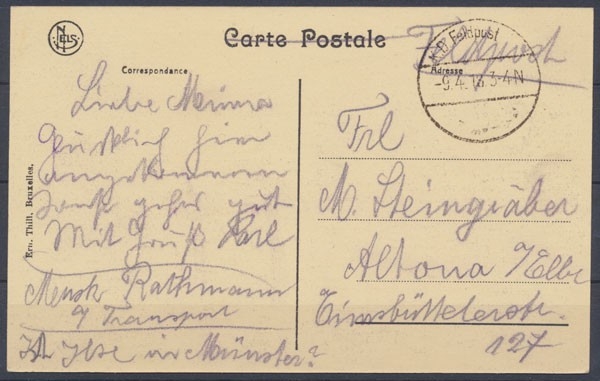 NELS
Carte Postale
Feldpost
K.D. Feldpost
-9.4.18. 3-4 N
Correspondance
Adresse
Liebe Minna
Glücklich hier
angekommen
sonst geht gut
Mit Gruß Karl
Rathmann
Transport
Ist Ilse in Münster?
Ern. Thill, Bruxelles.
Frl
M. Steingräber
Altona /Elbe
Eimsbüttelerstr.
127